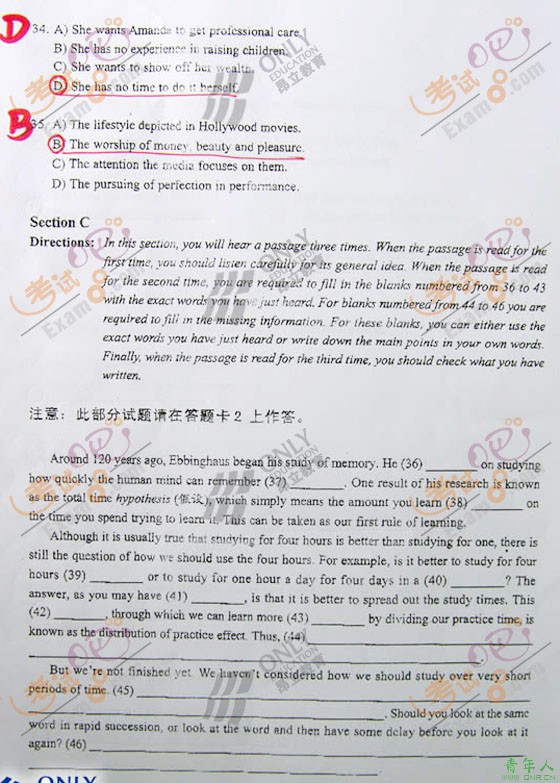 D 34. A) She wants Amanda to get professional care.
B) She has no experience in raising children.
C) She wants to show off her wealth.
D) She has no time to do it herself.
B 35. A) The lifestyle depicted in Hollywood movies.
B) The worship of money, beauty and pleasure.
C) The attention the media focuses on them.
D) The pursuing of perfection in performance.
Section C
Directions: In this section, you will hear a passage three times. When the passage is read for the
first time, you should listen carefully for its general idea. When the passage is read
for the second time, you are required to fill in the blanks numbered from 36 to 43
with the exact words you have just heard. For blanks numbered from 44 to 46 you are
required to fill in the missing information. For these blanks, you can either use the
exact words you have just heard or write down the main points in your own words.
Finally, when the passage is read for the third time, you should check what you have
written.
注意：此部分试题请在答题卡 2 上作答。
Around 120 years ago, Ebbinghaus began his study of memory. He (36) ________ on studying
how quickly the human mind can remember (37) ________. One result of his research is known
as the total time hypothesis (假设), which simply means the amount you learn (38) ________ on
the time you spend trying to learn it. This can be taken as our first rule of learning.
Although it is usually true that studying for four hours is better than studying for one, there is
still the question of how we should use the four hours. For example, is it better to study for four
hours (39) ________ or to study for one hour a day for four days in a (40) ________? The
answer, as you may have (41) ________, is that it is better to spread out the study times. This
(42) ________, through which we can learn more (43) ________ by dividing our practice time, is
known as the distribution of practice effect. Thus, (44) ________
________.
But we're not finished yet. We haven't considered how we should study over very short
periods of time. (45) ________
________. Should you look at the same
word in rapid succession, or look at the word and then have some delay before you look at it
again? (46) ________
________.
ONLY
EDUCATION
昂立教育
考试吧
Exam8.com
青年人